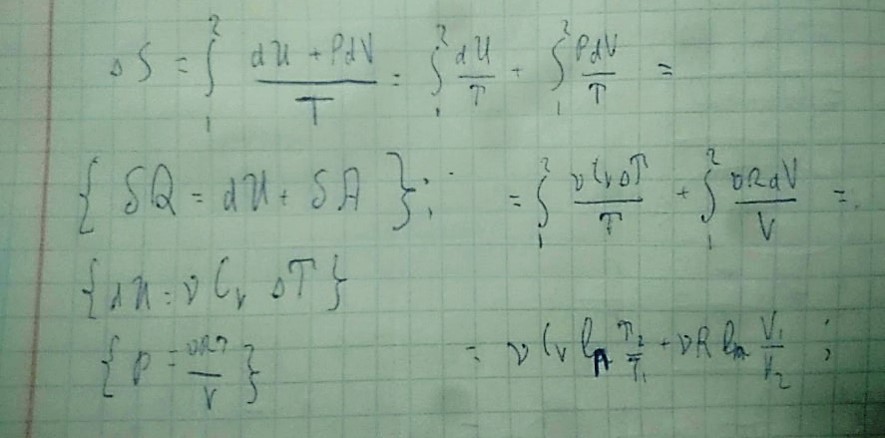 ΔS = ∫₁² (dU + PdV)/T = ∫₁² dU/T + ∫₁² PdV/T =
{ δQ = dU + δA }; = ∫₁² νCᵥΔT/T + ∫₁² νRdV/V =
{ dU = νCᵥ ΔT }
{ P = νRT/V } = νCᵥ ln T₂/T₁ + νR ln V₁/V₂ ;